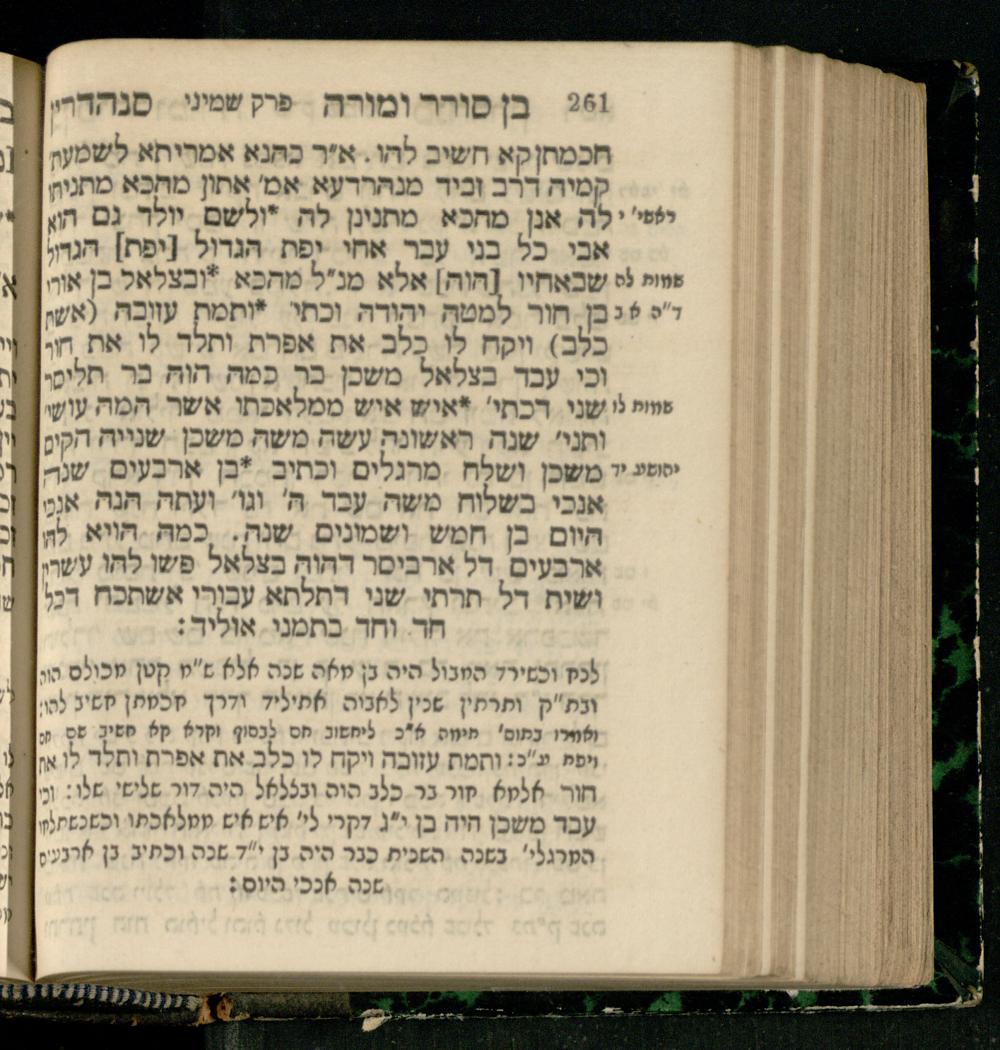 261 בן סורר ומורה פרק שמיני סנהדרין
חכמתן קא חשיב להו. א״ר כהנא אמריתא לשמעת׳
קמיה דרב זביד מנהרדעא אמ׳ אתון מהכא מתניתו
ראשי׳ י לה אנן מהכא מתנינן לה *ולשם יולד גם הוא
אבי כל בני עבר אחי יפת הגדול [יפת] הגדול
שמות לה שבאחיו [הוה] אלא מנ״ל מהכא *ובצלאל בן אורי
ד״ה א ב בן חור למטה יהודה וכתי׳ *ותמת עזובה (אשת
כלב) ויקח לו כלב את אפרת ותלד לו את חור
וכי עבד בצלאל משכן בר כמה הוה בר תליסר
שמות לו שני דכתי׳ *איש איש ממלאכתו אשר המה עושי׳
ותני׳ שנה ראשונה עשה משה משכן שנייה הקים
יהושע יד משכן ושלח מרגלים וכתיב *בן ארבעים שנה
אנכי בשלוח משה עבד ה׳ וגו׳ ועתה הנה אנכי
היום בן חמש ושמונים שנה. כמה הויא להו
ארבעים דל ארביסר דהוה בצלאל פשו להו עשרין
ושית דל תרתי שני דתלתא עבורי אשתכח דכל
חד וחד בתמני אוליד:
לכת וכשירד המבול היה בן מאה שנה אלא ש״מ קטן מכולם הוה
ובת״ק ותרתין שנין לאבוה אתיליד ודרך חכמתן חשיב להו:
ואמרו בתוס׳ תימה א״כ ליחשוב חם לבסוף וקרא קא חשיב שם חם
ויפת ע״כ: ותמת עזובה ויקח לו כלב את אפרת ותלד לו את
חור אלמא חור בר כלב הוה ובצלאל היה דור שלישי שלו: וכי
עבד משכן היה בן י״ג דקרי לי׳ איש איש ממלאכתו וכשנשתלחו
המרגלי׳ בשנה השנית כבר היה בן י״ד שנה וכתיב בן ארבעים
שנה אנכי היום: